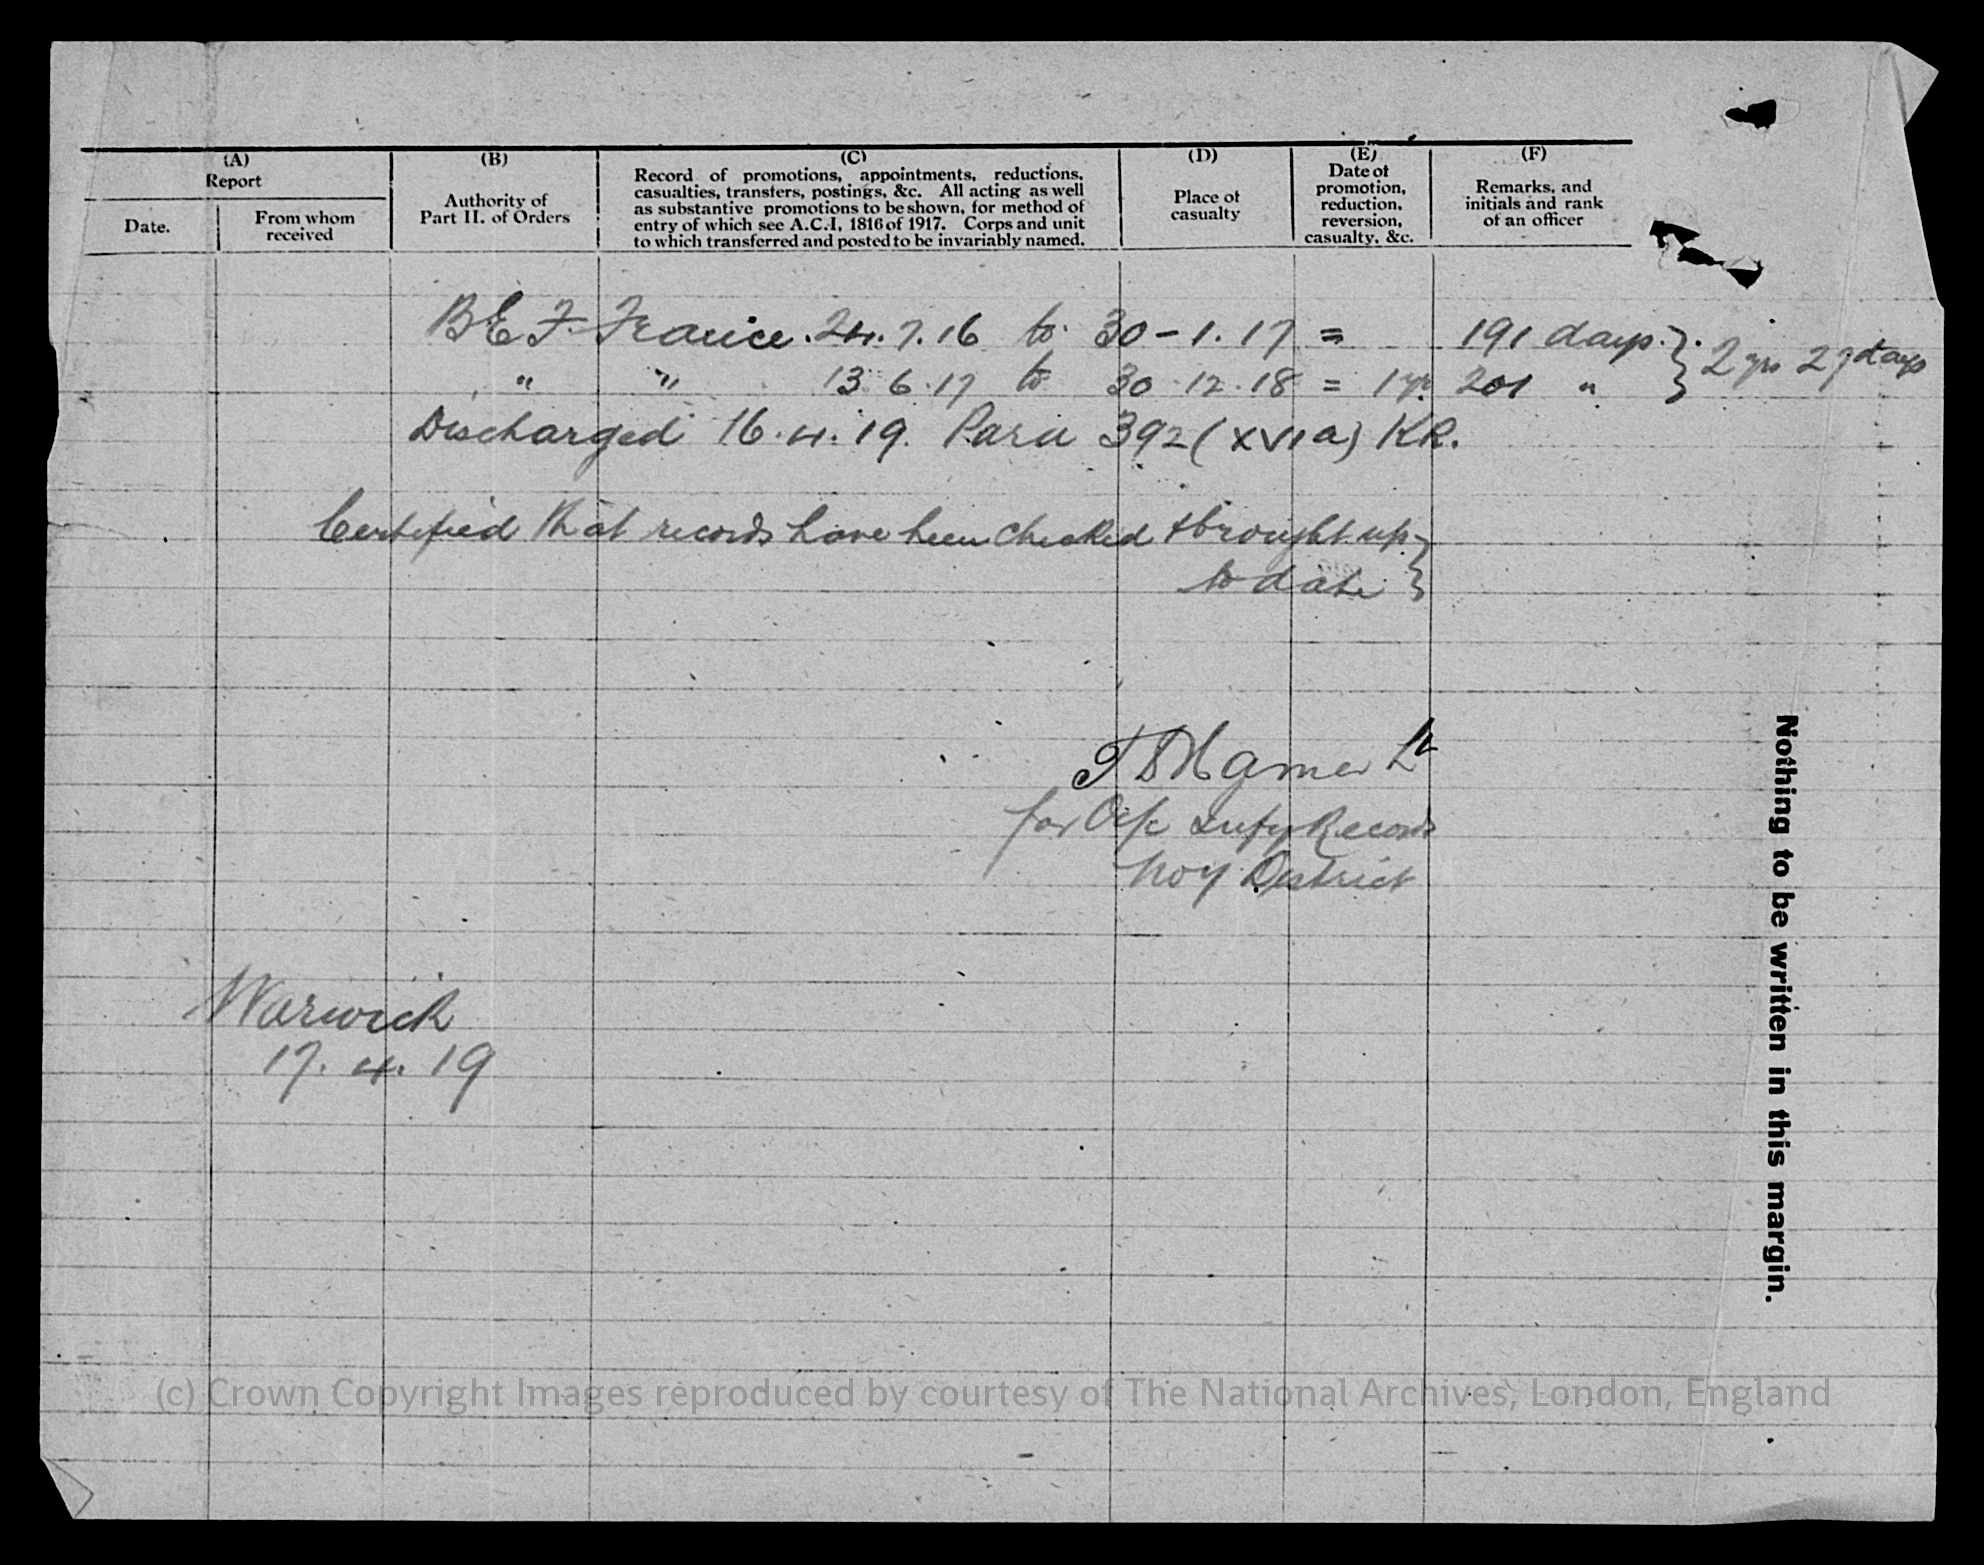 (A)
Report
Date.
From whom
received
(B)
Authority of
Part II. of Orders
(C)
Record of promotions, appointments, reductions,
casualties, transfers, postings, &c. All acting as well
as substantive promotions to be shown, for method of
entry of which see A.C.I, 1816 of 1917. Corps and unit
to which transferred and posted to be invariably named.
(D)
Place of
casualty
(E)
Date of
promotion,
reduction,
reversion,
casualty, &c.
(F)
Remarks, and
initials and rank
of an officer
BEF France. 24.7.16 to 30-1.17 = 191 days } 2 yrs 27 days
" " 13.6.17 to 30.12.18 = 1 yr 201 "
Discharged 16.4.19. Para 392 (XVIa) KR.
Certified that records have been checked & brought up
to date }
Lt
for O i/c Infy Records
District
Warwick
17.4.19
Nothing to be written in this margin.
(c) Crown Copyright Images reproduced by courtesy of The National Archives, London, England